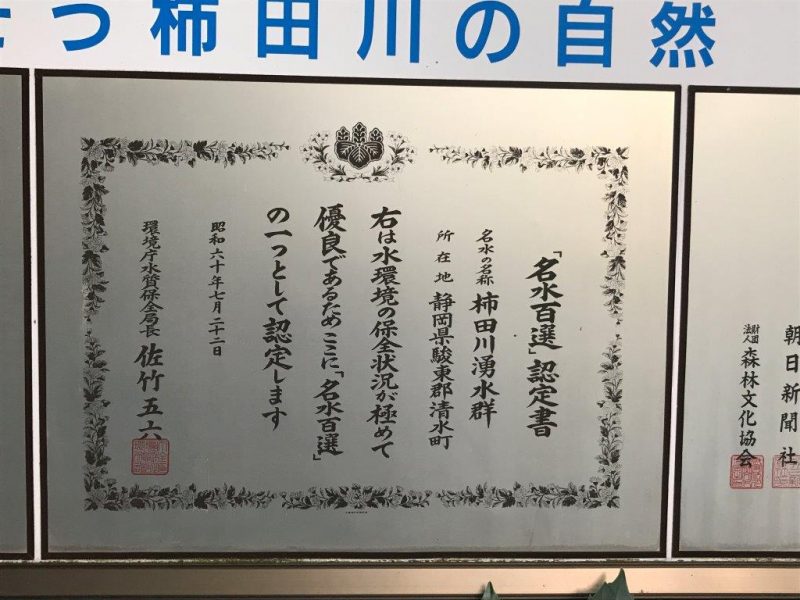 つ柿田川の自然
「名水百選」認定書
名水の名称 柿田川湧水群
所在地 静岡県駿東郡清水町
右は水環境の保全状況が極めて
優良であるためここに「名水百選」
の一つとして認定します
昭和六十年七月二十二日
環境庁水質保全局長 佐竹五六
朝日新聞社
財団法人 森林文化協会